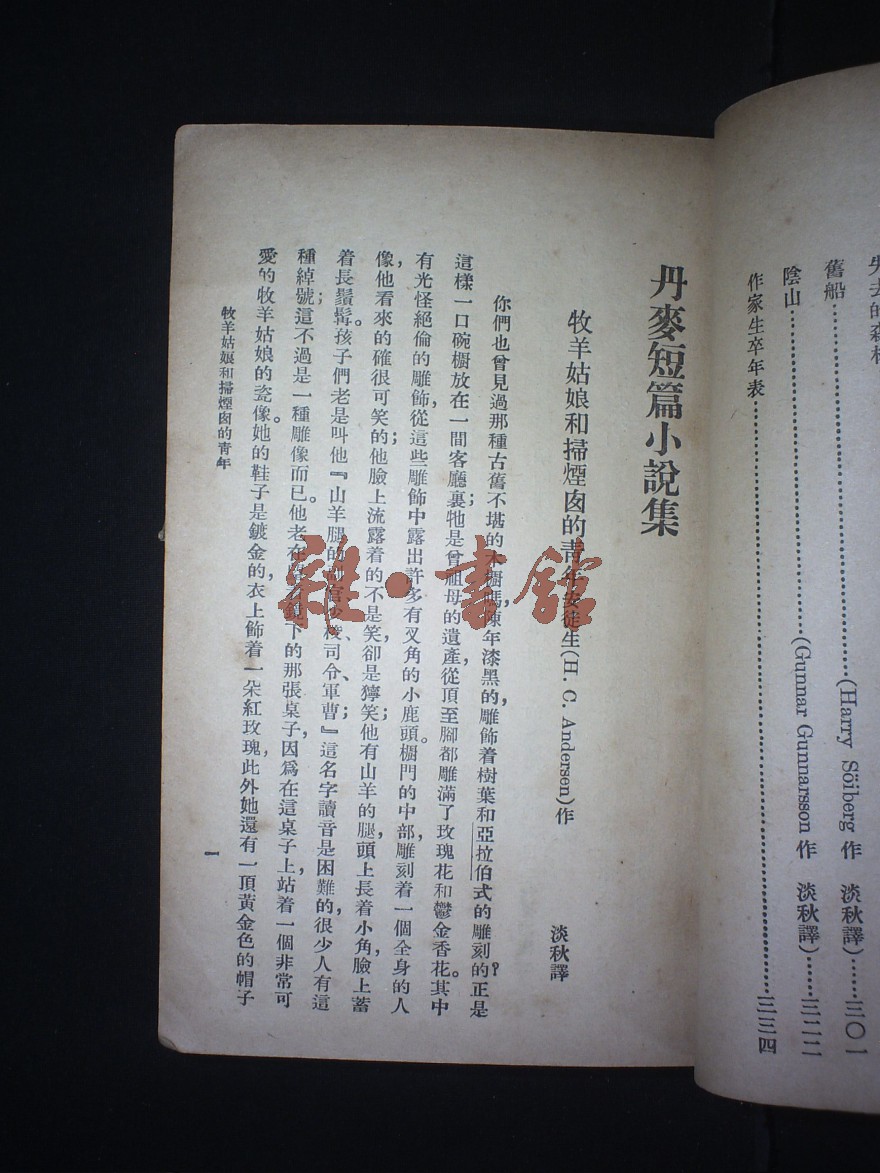 失去的森林
舊船……(Harry Söiberg 作 淡秋譯)……三〇一
陰山……(Gunnar Gunnarsson 作 淡秋譯)……三二二
作家生卒年表……三三四
丹麥短篇小說集
牧羊姑娘和掃煙囪的青年 安徒生(H. C. Andersen)作
淡秋譯
你們也曾見過那種古舊不堪的木櫥嗎,陳年漆黑的,雕飾着樹葉和亞拉伯式的雕刻的?正是
這樣一口碗櫥放在一間客廳裏;牠是曾祖母的遺產,從頂至腳都雕滿了玫瑰花和鬱金香花。其中
有光怪絕倫的雕飾,從這些雕飾中露出許多有叉角的小鹿頭。櫥門的中部,雕刻着一個全身的人
像,他看來的確很可笑的;他臉上流露着的不是笑,卻是獰笑;他有山羊的腿,頭上長着小角,臉上蓄
着長鬚髯。孩子們老是叫他『山羊腿的司令、軍曹』;這名字讀音是困難的,很少人有這
種綽號;這不過是一種雕像而已。他老在鏡下的那張桌子,因爲在這桌子上站着一個非常可
愛的牧羊姑娘的瓷像。她的鞋子是鍍金的,衣上飾着一朵紅玫瑰,此外她還有一頂黃金色的帽子
牧羊姑娘和掃煙囪的青年
一
雜·書館